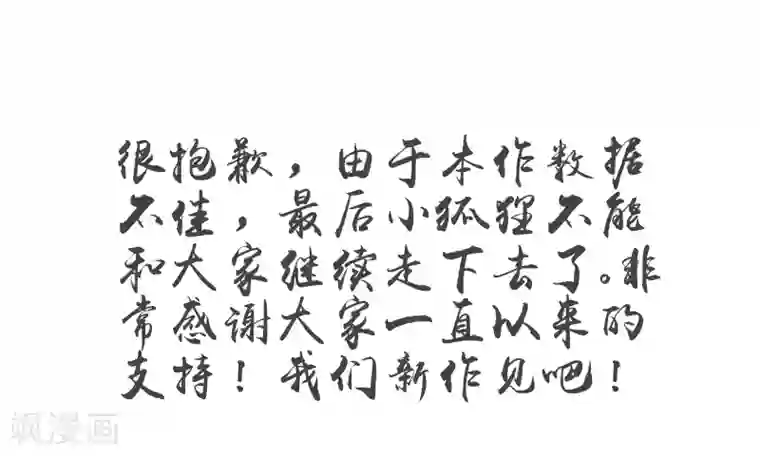 很抱歉，由于本作数据
不佳，最后小狐狸不能
和大家继续走下去了。非
常感谢大家一直以来的
支持！我们新作见吧！
飒漫画